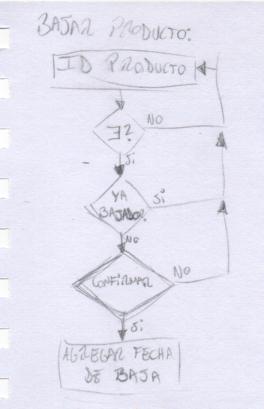 BAJAR PRODUCTO:
ID PRODUCTO
∃?
NO
Si
YA
BAJADO?
Si
NO
CONFIRMAR
NO
Si
AGREGAR FECHA
DE BAJA